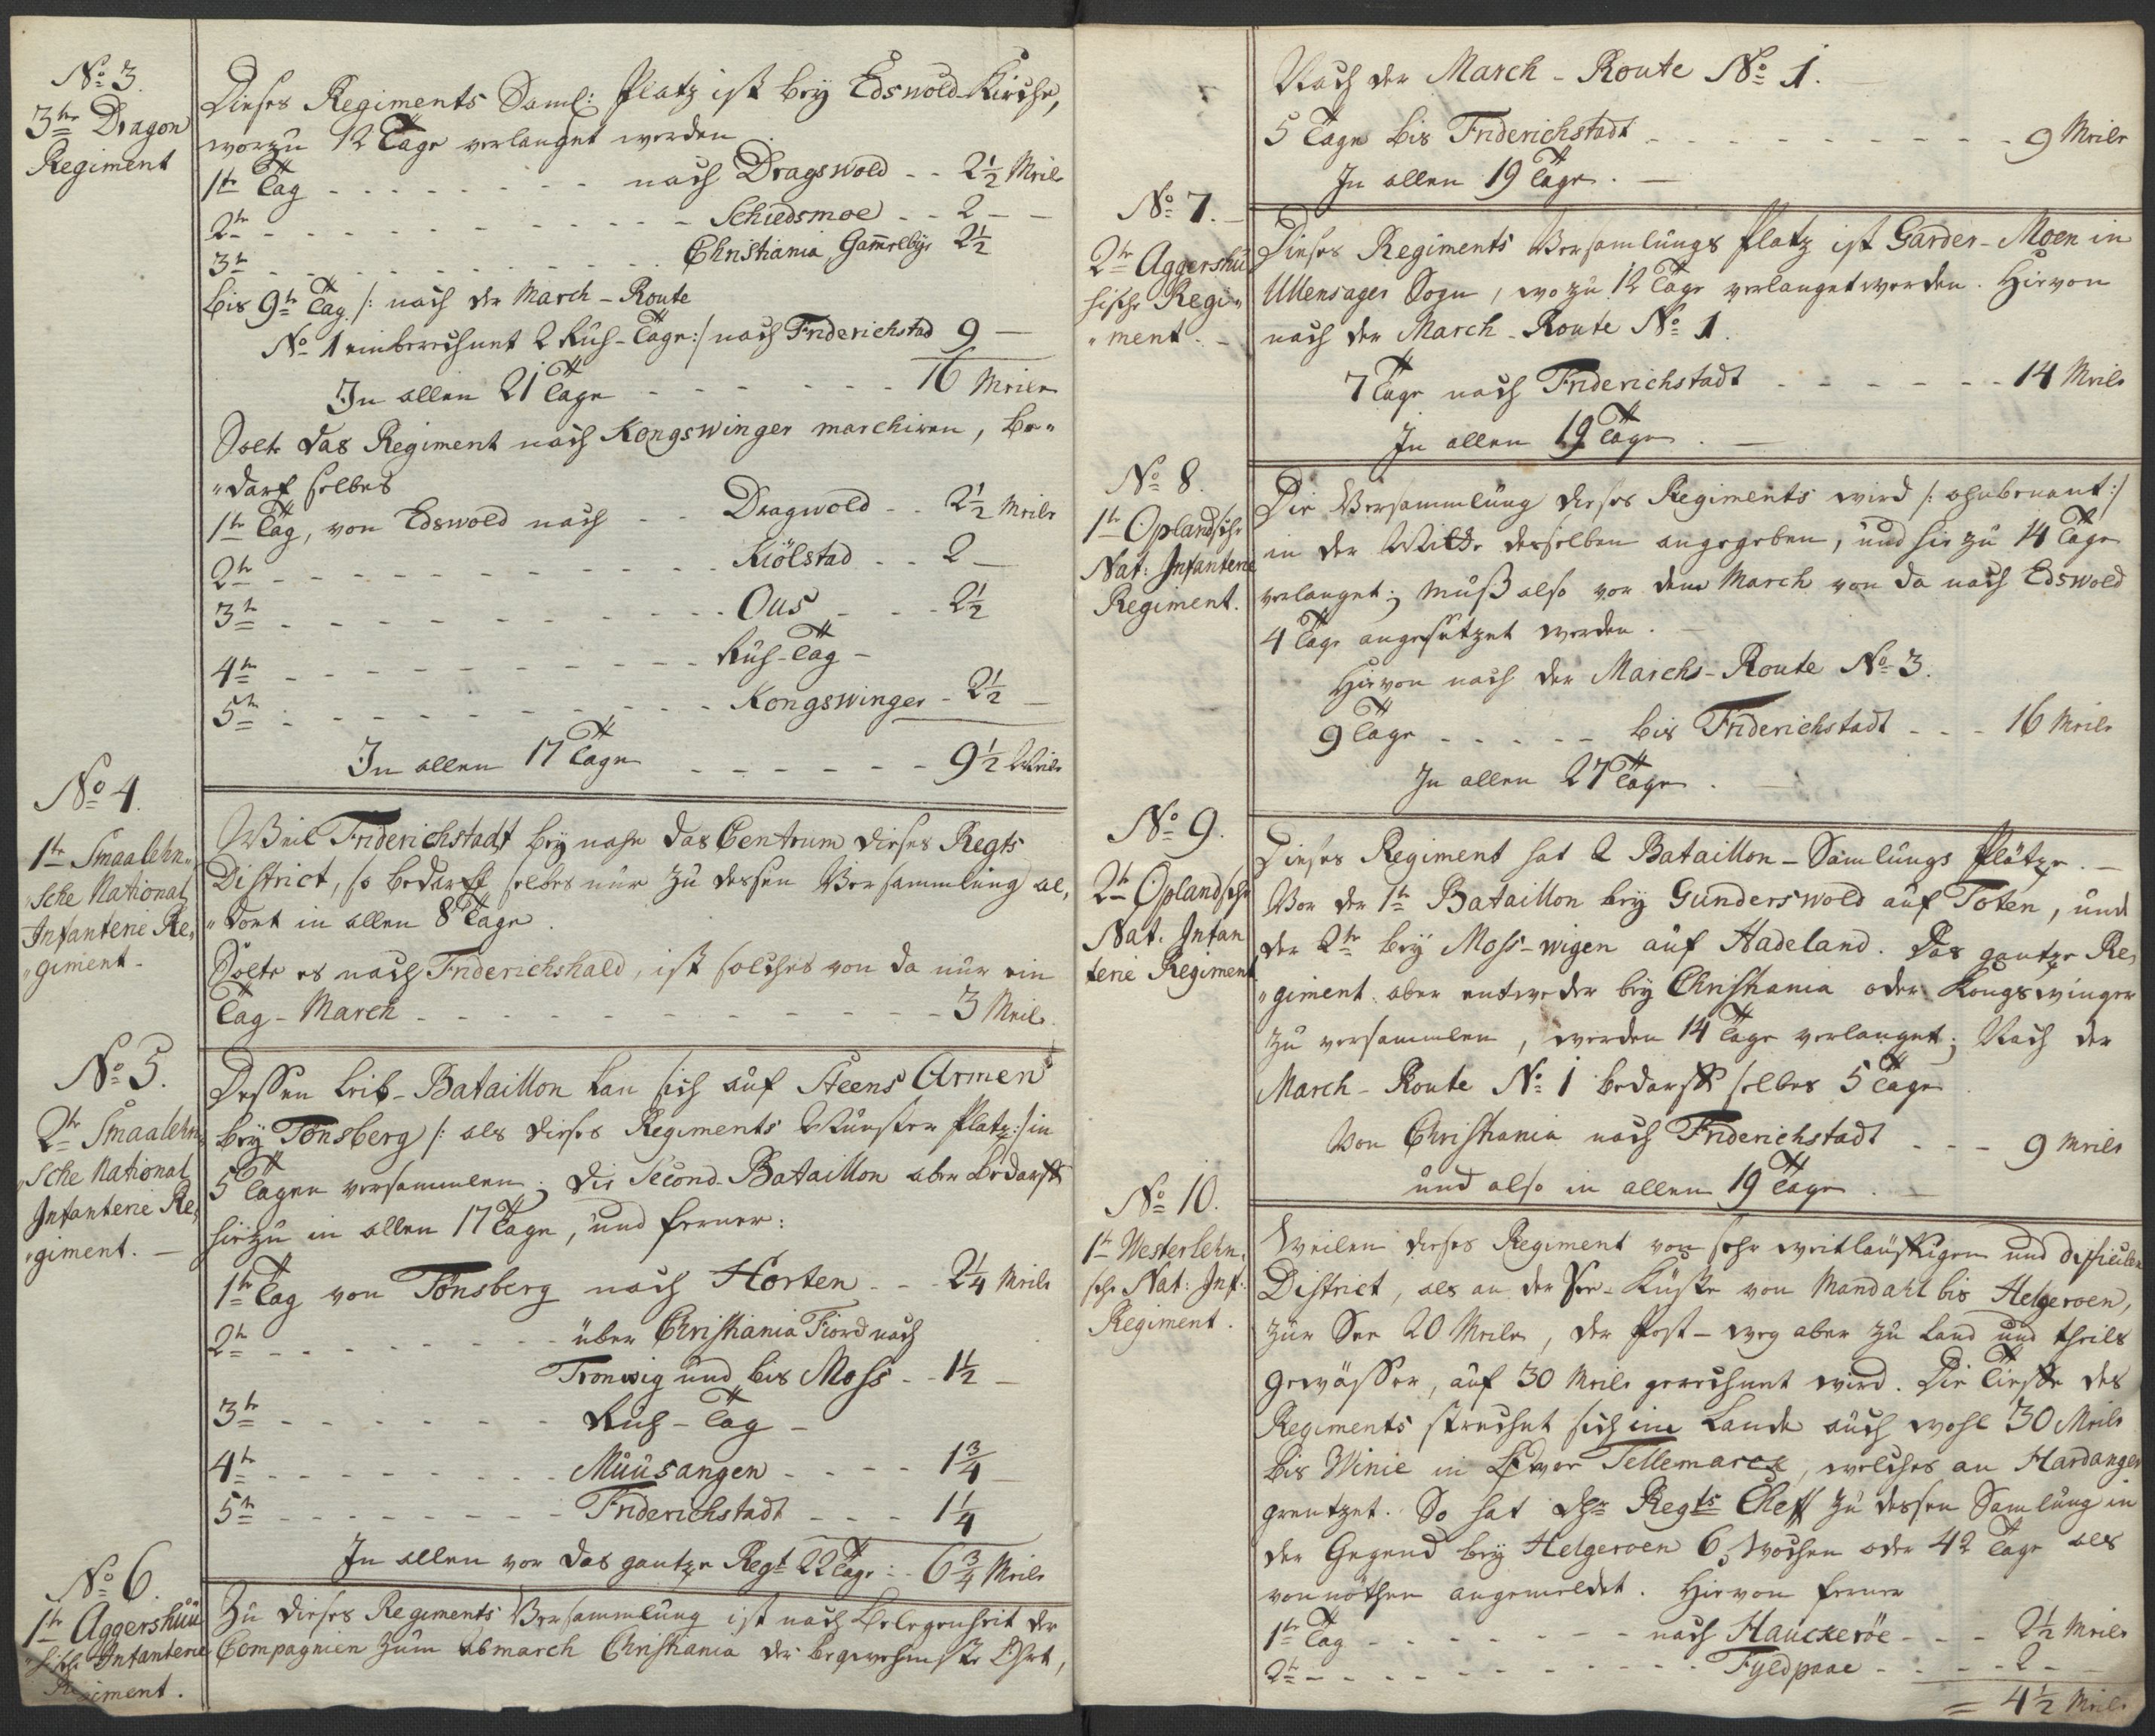 No 3.
3te Dragon
Regiment
Dieses Regiments Saml: Platz ist bey Edswold-Kirche,
worzu 12 Tage verlanget werden
1te Tag - - - nach Dragswold - - 2½ Meile
2te - - - Schiedsmoe - - 2 - -
3te - - - Christiania Gam̅elbye 2½
bis 9te Tag /: nach der March-Route
No 1 einberechnet 2 Ruh-Tage :/ nach Friderichstad 9 -
In allen 21 Tage - - - 16 Meilen
Solte das Regiment nach Kongswinger marchiren, be„
„darf selbes
1te Tag, von Edswold nach - - Dragwold - - 2½ Meile
2te - - - Kiölstad - - 2 -
3te - - - Ous - - - 2½
4te - - - Ruh-Tag -
5te - - - Kongswinger - 2½ -
In allen 17 Tage - - - 9½ Meile
No 4.
1te Smaalehn„
„sche National
Infanterie Re„
„giment.
Weil Friderichstadt bey nahe das Centrum dieses Regts
District, so bedarff selbes nur zu dessen Versammlung al„
„dort in allen 8 Tage.
Solte es nach Friderichshald, ist solches von da nur ein
Tag-March - - - 3 Meile.
No 5.
2te Smaalehn„
„sche National
Infanterie Re„
„giment. -
Dessen Leib-Bataillon kan sich auf Steens Armen
bey Tonsberg /: als dieses Regiments Münster Platz :/ in
5 Tagen versammlen; die Second-Bataillon aber bedarff
hiezu in allen 17 Tage, und ferner:
1te Tag von Tonsberg nach Horten - - 2¼ Meile
2te - - - über Christiania Fiord nach
Tronwig und bis Moss - - 1½ -
3te - - - Ruh-Tag -
4te - - - Muusangen - - - 1¾ -
5te - - - Friderichstadt - - - 1¼
In allen vor das gantze Regt 22 Tage :- 6¾ Meile
No 6.
1te Aggershuu„
„sische Infanterie
Regiment.
Zu dieses Regiments Versammlung ist nach Belegenheit der
Compagnien zum Abmarch Christiania der beqvehmste Ohrt,
Nach der March-Route No 1.
5 Tage bis Friderichstadt - - - 9 Meile
In allen 19 Tage. -
No 7. -
2te Aggershu
sische Regi„
„ment. -
Dieses Regiments Versamlungs Platz ist Garder-Moen in
Ullensager Sogn, wozu 12 Tage verlanget werden. Hievon
nach der March-Route No 1.
7 Tage nach Friderichstadt - - - 14 Meile
In allen 19 Tage. -
No 8.
1te Oplandsche
Nat: Infanterie
Regiment.
Die Versammlung dieses Regiments wird /: ohnbenant :/
in der Mitte desselben angegeben, und hie zu 14 Tage
verlanget; muß also vor dem March von da nach Edswold
4 Tage angesetzet werden. -
Hievon nach der Marchs-Route No 3.
9 Tage - - - bis Friderichstadt - - - 16 Meile
In allen 27 Tage. -
No 9.
2te Oplandsche
Nat: Infan
terie Regiment
Dieses Regiment hat 2 Bataillon-Samlungs Plätze. -
Vor der 1te Bataillon bey Gunderswold auf Toten, und
der 2te bey Moss-wigen auf Hadeland. Das gantze Re„
„giment aber entweder bey Christiania oder Kongswinger
zu versammlen, werden 14 Tage verlanget; Nach der
March-Route No 1 bedarff selbes 5 Tage
Von Christiania nach Friderichstadt - - - 9 Meile
und also in allen 19 Tage. -
No 10.
1te Westerlehn„
sche Nat: Inf:
Regiment.
Weilen dieses Regiment von sehr weitläuftigen und dificulen
District, als an der See-Küste von Mandahl bis Helgeroen,
zur See 20 Meile, der Post-weg aber zu Land und theils
Gewässer, auf 30 Meile gerechnet wird. Die Tieffe des
Regiments strechet sich im Lande auch wohl 30 Meile
bis Winie in Över Tellemarck, welches an Hardanger
grentzet. So hat der Regts Cheff zu dessen Samlung in
der Gegend bey Helgeroen 6 Wochen oder 42 Tage als
vonnöthen angemeldet. Hievon ferner
1te Tag - - - nach Hauckeröe - - - 2½ Meile
2te - - - Fyldpaae - - - 2 -
= 4½ Meile